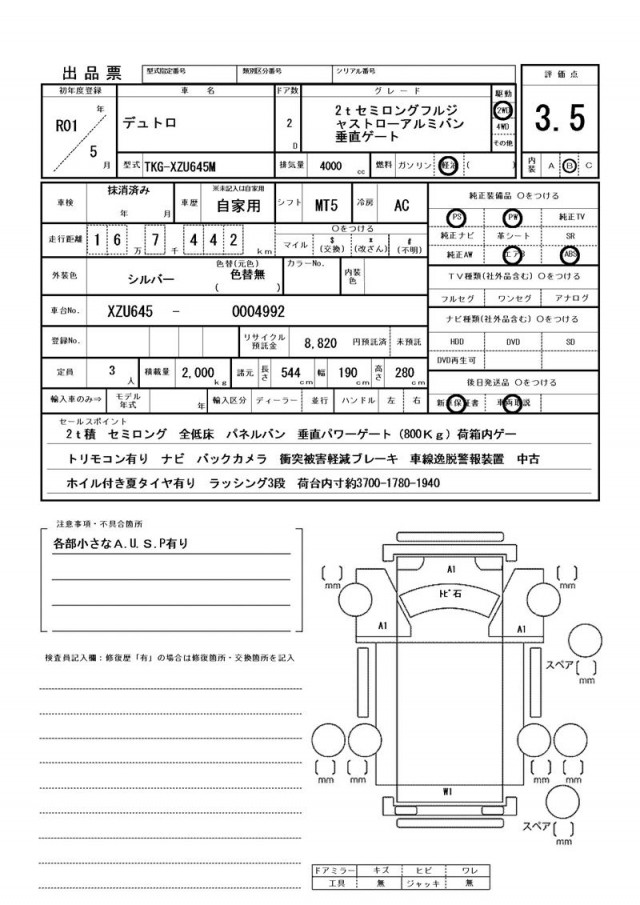 出品票 型式指定番号 類別区分番号 シリアル番号
評価点
3.5
内装 A B C
初年度登録 車名 ドア数 グレード 駆動
R01年 5月 デュトロ 2D 2tセミロングフルジャストローアルミバン垂直ゲート 2WD 4WD その他
型式 TKG-XZU645M 排気量 4000cc 燃料 ガソリン 軽油 ( )
車検 抹消済み 年 月 車歴 ※未記入は自家用 自家用 シフト MT5 冷房 AC
走行距離 16万7千442km ○をつける マイル $(交換) *(改ざん) #(不明)
外装色 シルバー 色替(元色) 色替無 ( ) カラーNo. 内装色
車台No. XZU645 - 0004992
登録No. リサイクル預託金 8,820 円預託済 未預託
定員 3人 積載量 2,000kg 諸元 長さ 544cm 幅 190cm 高さ 280cm
輸入車のみ⇒ モデル年式 年 輸入区分 ディーラー 並行 ハンドル 左 右
純正装備品 ○をつける
PS PW 純正TV
純正ナビ 革シート SR
純正AW エアB ABS
TV種類(社外品含む) ○をつける
フルセグ ワンセグ アナログ
ナビ種類(社外品含む) ○をつける
HDD DVD SD
DVD再生可
後日発送品 ○をつける
新車保証書 車両取説
セールスポイント
2t積 セミロング 全低床 パネルバン 垂直パワーゲート(800Kg)荷箱内ゲー
トリモコン有り ナビ バックカメラ 衝突被害軽減ブレーキ 車線逸脱警報装置 中古
ホイル付き夏タイヤ有り ラッシング3段 荷台内寸約3700-1780-1940
注意事項・不具合箇所
各部小さなA.U.S.P有り
検査員記入欄:修復歴「有」の場合は修復箇所・交換箇所を記入
A1
ﾄﾋﾞ石
[ ] mm
[ ] mm
A1
A1
スペア [ ] mm
[ ] mm
[ ] mm
[ ] mm
[ ] mm
W1
スペア [ ] mm
ドアミラー キズ ヒビ ワレ
工具 無 ジャッキ 無